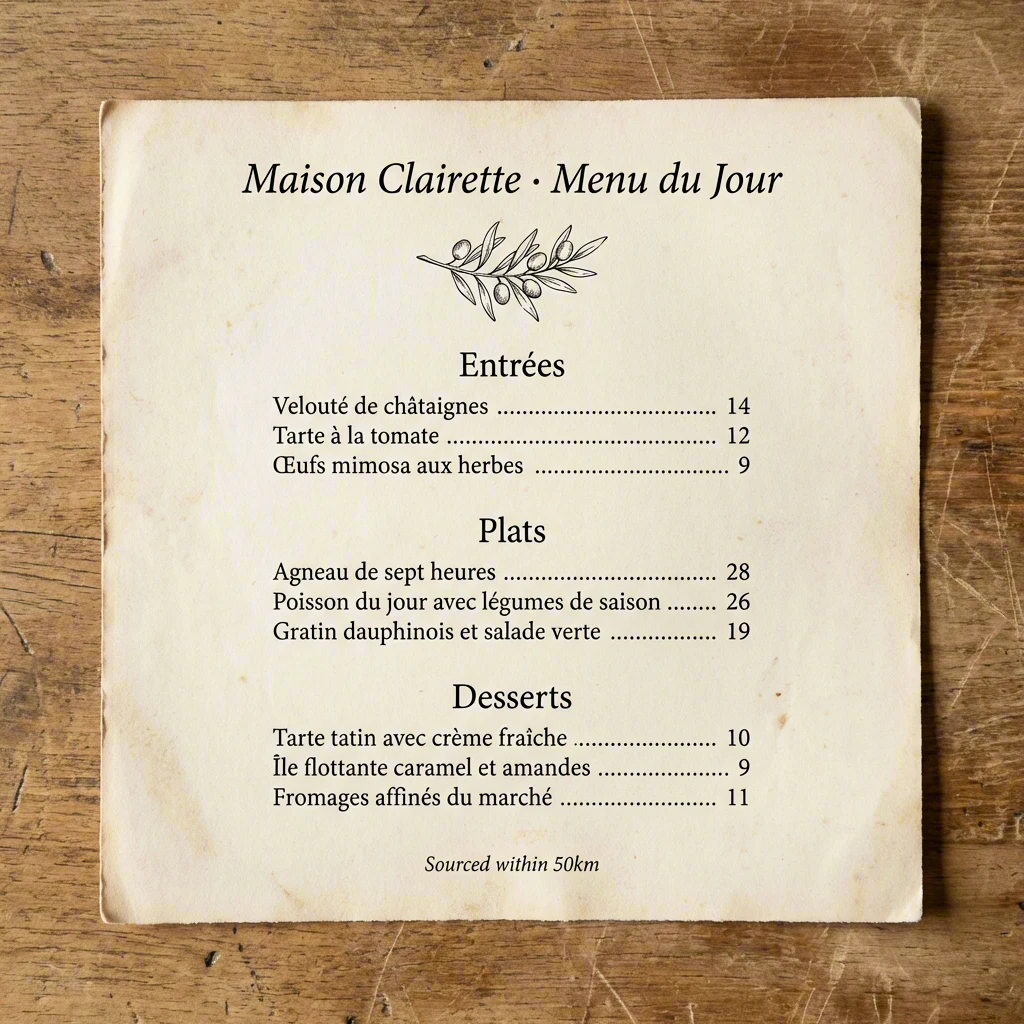 Maison Clairette · Menu du Jour
Entrées
Velouté de châtaignes ..................................... 14
Tarte à la tomate .............................................. 12
Œufs mimosa aux herbes ................................. 9
Plats
Agneau de sept heures .................................... 28
Poisson du jour avec légumes de saison ........ 26
Gratin dauphinois et salade verte .................. 19
Desserts
Tarte tatin avec crème fraîche ........................ 10
Île flottante caramel et amandes ...................... 9
Fromages affinés du marché ........................... 11
Sourced within 50km